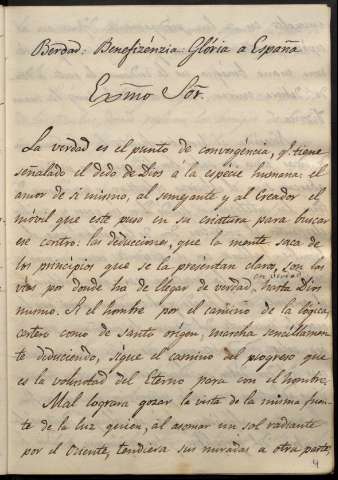 Berdad: Benefizénzia: Glória a España
Exmo Sor.
La verdad es el punto de convergéncia, q.e tiene
señalado el dedo de Dios á la espécie humana: el
amor de si mismo, al semejante y al Creador el
móvil que este puso en su criatura para buscar
ese centro: las deducciones, que la mente saca de
los principios que se la presentan claros, son las
vias por donde ha de llegar de verdad en verdad hasta Dios
mismo. Si el hombre por el camino de la lógica,
certero como de santo origen, marcha sencillamen-
te deduciendo, sigue el camino del progreso que
es la voluntad del Eterno para con el hombre.
Mal lograra gozar la vista de la misma fuen-
te de la luz quien, al asomar un sol radiante
por el Oriente, tendiera sus miradas a otra parte,
4